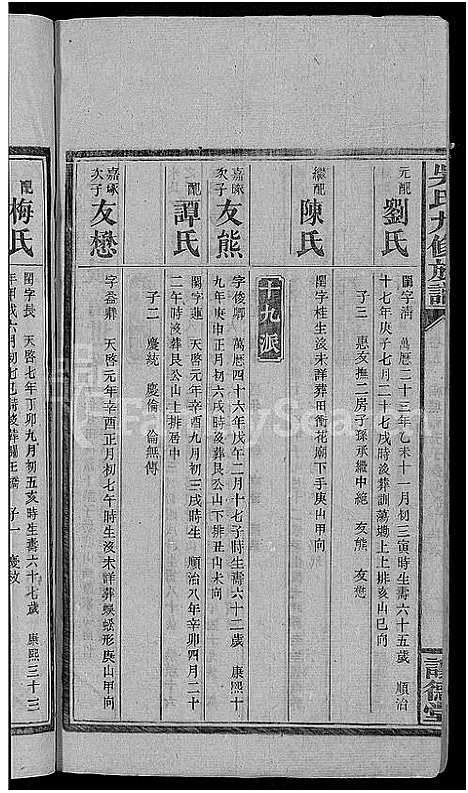 吳氏九修族譜
元配
劉氏
閨字清 萬曆二十三年乙未十一月初三寅時生壽六十五歲 順治
十七年庚子七月二十七戌時沒葬訓蕩坳上上排亥山巳向
子三 惠友撫二房子孫承繼中絕 友熊 友懋
繼配
陳氏
閨字桂生沒未詳葬田衝花廟下手庚山甲向
十九派
嘉啄
次子
友熊
字俊卿 萬曆四十六年戊午二月十七子時生壽六十二歲 康熙十
九年庚申正月初六戌時葬艮公山上下排丑山未向
配
譚氏
閨字蓮 天啓元年辛酉九月初三戌時生 順治八年辛卯四月二十
二午時沒葬艮公山上排居中
子二 慶統 慶倫 倫無傳
嘉啄
次子
友懋
字益彝 天啓元年辛酉正月初七午時生沒未詳葬蜈蚣形庚山甲向
配
梅氏
閨字長 天啓七年丁卯九月初五亥時生壽六十七歲 康熙三十三
年甲戌六月初七
子一 慶
德堂